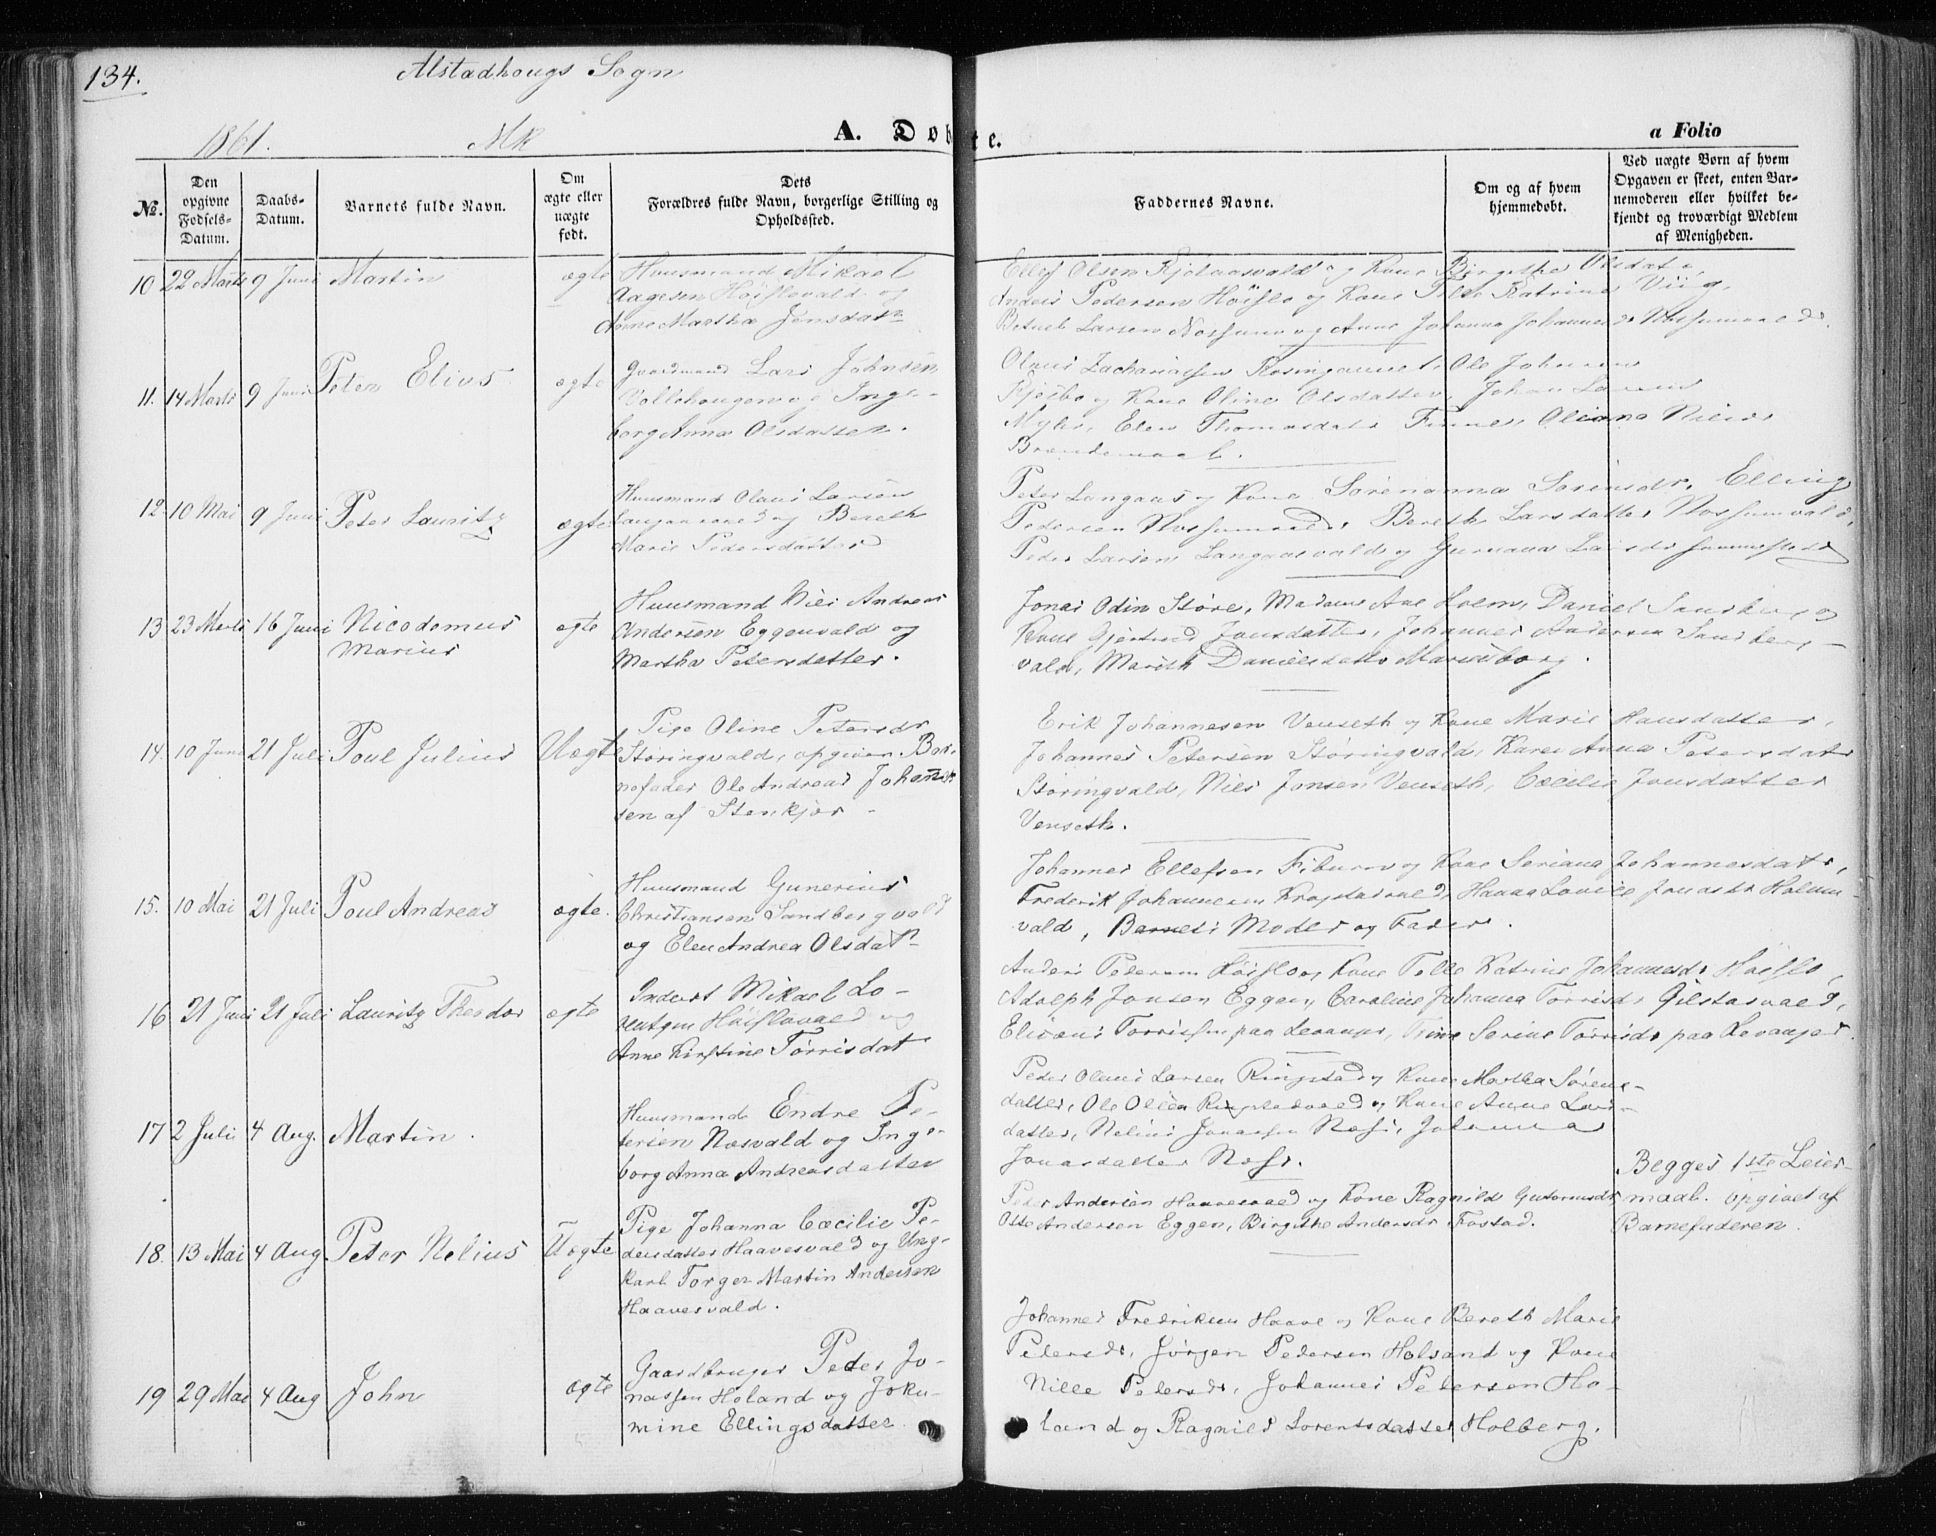 134.
Alstadhougs Sogn
1861.
Mk
A. Døbte.
a Folio
No.
Den opgivne Fødsels-Datum.
Daabs-Datum.
Barnets fulde Navn.
Om ægte eller uægte født.
Dets Forældres fulde Navn, borgerlige Stilling og Opholdssted.
Faddernes Navne.
Om og af hvem hjemmedøbt.
Ved uægte Børn af hvem Opgaven er skeet, enten Barnemoderen eller hvilket bekjendt og troværdigt Medlem af Menigheden.
10 22 Marts 9 Juni Martin ægte
Huusmand Mikael
Aagesen Höiflovald og
Anne Martha Jensdatr
Ellef Olsen og Kone Birgithe Olsdatr,
Anders Pedersen Höiflo og Kone Katrine Viig,
Larsen Nossum og Anne Johanna
11. 14 Marts 9 Juni Peter Elius ægte
Gaardmand Lars Johnsen
Vollehaugen og Inge-
borg Anna Olsdatter.
Olaus Zachariassen Ole Johnsen
og Kone Oline Olsdatter, Johan Larsen
Myhr, Elen Thomasdatr Oliana Nilsdr
12 10 Mai 9 Juni Peter Lauritz ægte
Huusmand Olaus Larsen
Langaasvald og Bereth
Marie Pedersdatter
Peter Langaas og Kone Sørenanna Sørensdr, Elling
Pedersen Bereth Larsdatter Nossumvald,
Peder Larsen Langaasvald og Larsdr sammesteds
13 23 Marts 16 Juni Nicodemus
Marius ægte
Huusmand Nils Andreas
Andersen Eggenvald og
Martha Petersdatter.
Jonas Odin Støre, Madame Ane Holm, Daniel Sandberg og
Kone Gjertrud Jonsdatter, Johannes Andersen Sandberg-
vald, Marith Danielsdatter Marienborg.
14. 10 Juni 21 Juli Poul Julius Uægte
Pige Oline Petersdr
Støringvald, opgiven Bar-
nefader Ole Andreas Johanne-
sen af Stenkjær -
Erik Johannesen Venseth og Kone Marie Hansdatter,
Johannes Petersen Støringvald, Karen Anna Petersdatr
Støringvald, Nils Jonsen Venseth, Cæcilie Jonsdatter
Venseth.
15. 10 Mai 21 Juli Poul Andreas ægte.
Huusmand Gunerius
Christiansen Sandbergvald
og Elen Andrea Olsdatr
Johannes Ellefsen og Kone Seriana Johannesdatr,
Frederik Johannesen Hanna Lovise Jonasdr Holum-
vald, Barnets Moder og Fader.
16 21 Juni 21 Juli Lauritz Theodor ægte
Inderst Mikael Lo-
Höiflovald og
Anne Kirstine Tørrisdatr
Anders Pedersen Höiflo og Kone Katrine Johannesdr Höiflo,
Adolph Jonsen Eggen, Caroline Johanna Tørrisdr Gilstasvald,
Tørrissen paa Levanger, Trine Serine Tørrisdr paa Levanger.
17 2 Juli 4 Aug. Martin. 
Huusmand Endre Pe-
tersen Næsvald og Inge-
borg Anna Andreasdatter
Peder Olaus Larsen Ringstad og Kone Martha Sørens-
datter, Ole Olsen og Kone Anne Lars-
datter, Nelius Jonassen Næss, Johanna
Jonasdatter Næss.
18. 13 Mai 4 Aug Peter Nelius Uægte
Pige Johanna Cæcilie Pe-
dersdatter Haavesvald og Ung-
karl Torger Martin Andersen
Haavesvald.
Peder Andersen Haavesvald og Kone Ragnild Gutormsdr,
Otto Andersen Eggen, Birgithe Andersdr Fostad.
Begges 1ste Leier-
maal. opgivet af
Barnefaderen.
19 29 Mai 4 Aug John ægte
Gaardbruger Peder Jo-
nassen Holand og Joku-
mine Ellingsdatter.
Johannes Fredriksen Haave og Kone Bereth Marie
Petersdr, Jørgen Pedersen Holsand og Kone
Nille Petersdr, Johannes Petersen Ho-
land og Ragnild Lorentsdatter Holberg.